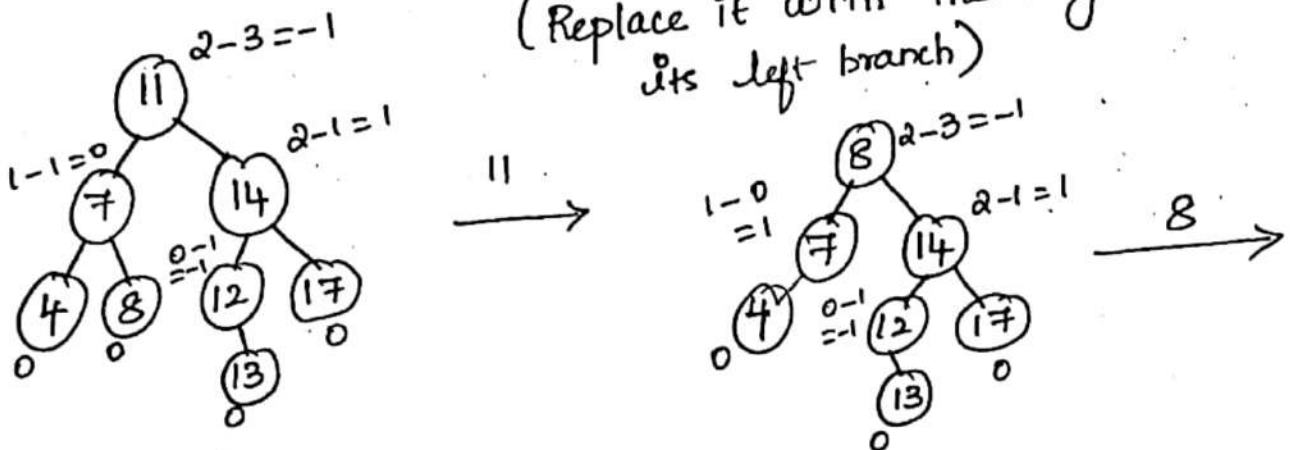 (Replace it
its left branch)
2-3=-1
11
1-1=0
2-1=1
7
14
0-1
=-1
4
8
12
17
0
0
0
13
0
11
8
2-3=-1
1-0
=1
2-1=1
7
14
0-1
=-1
4
12
17
0
0
13
0
8